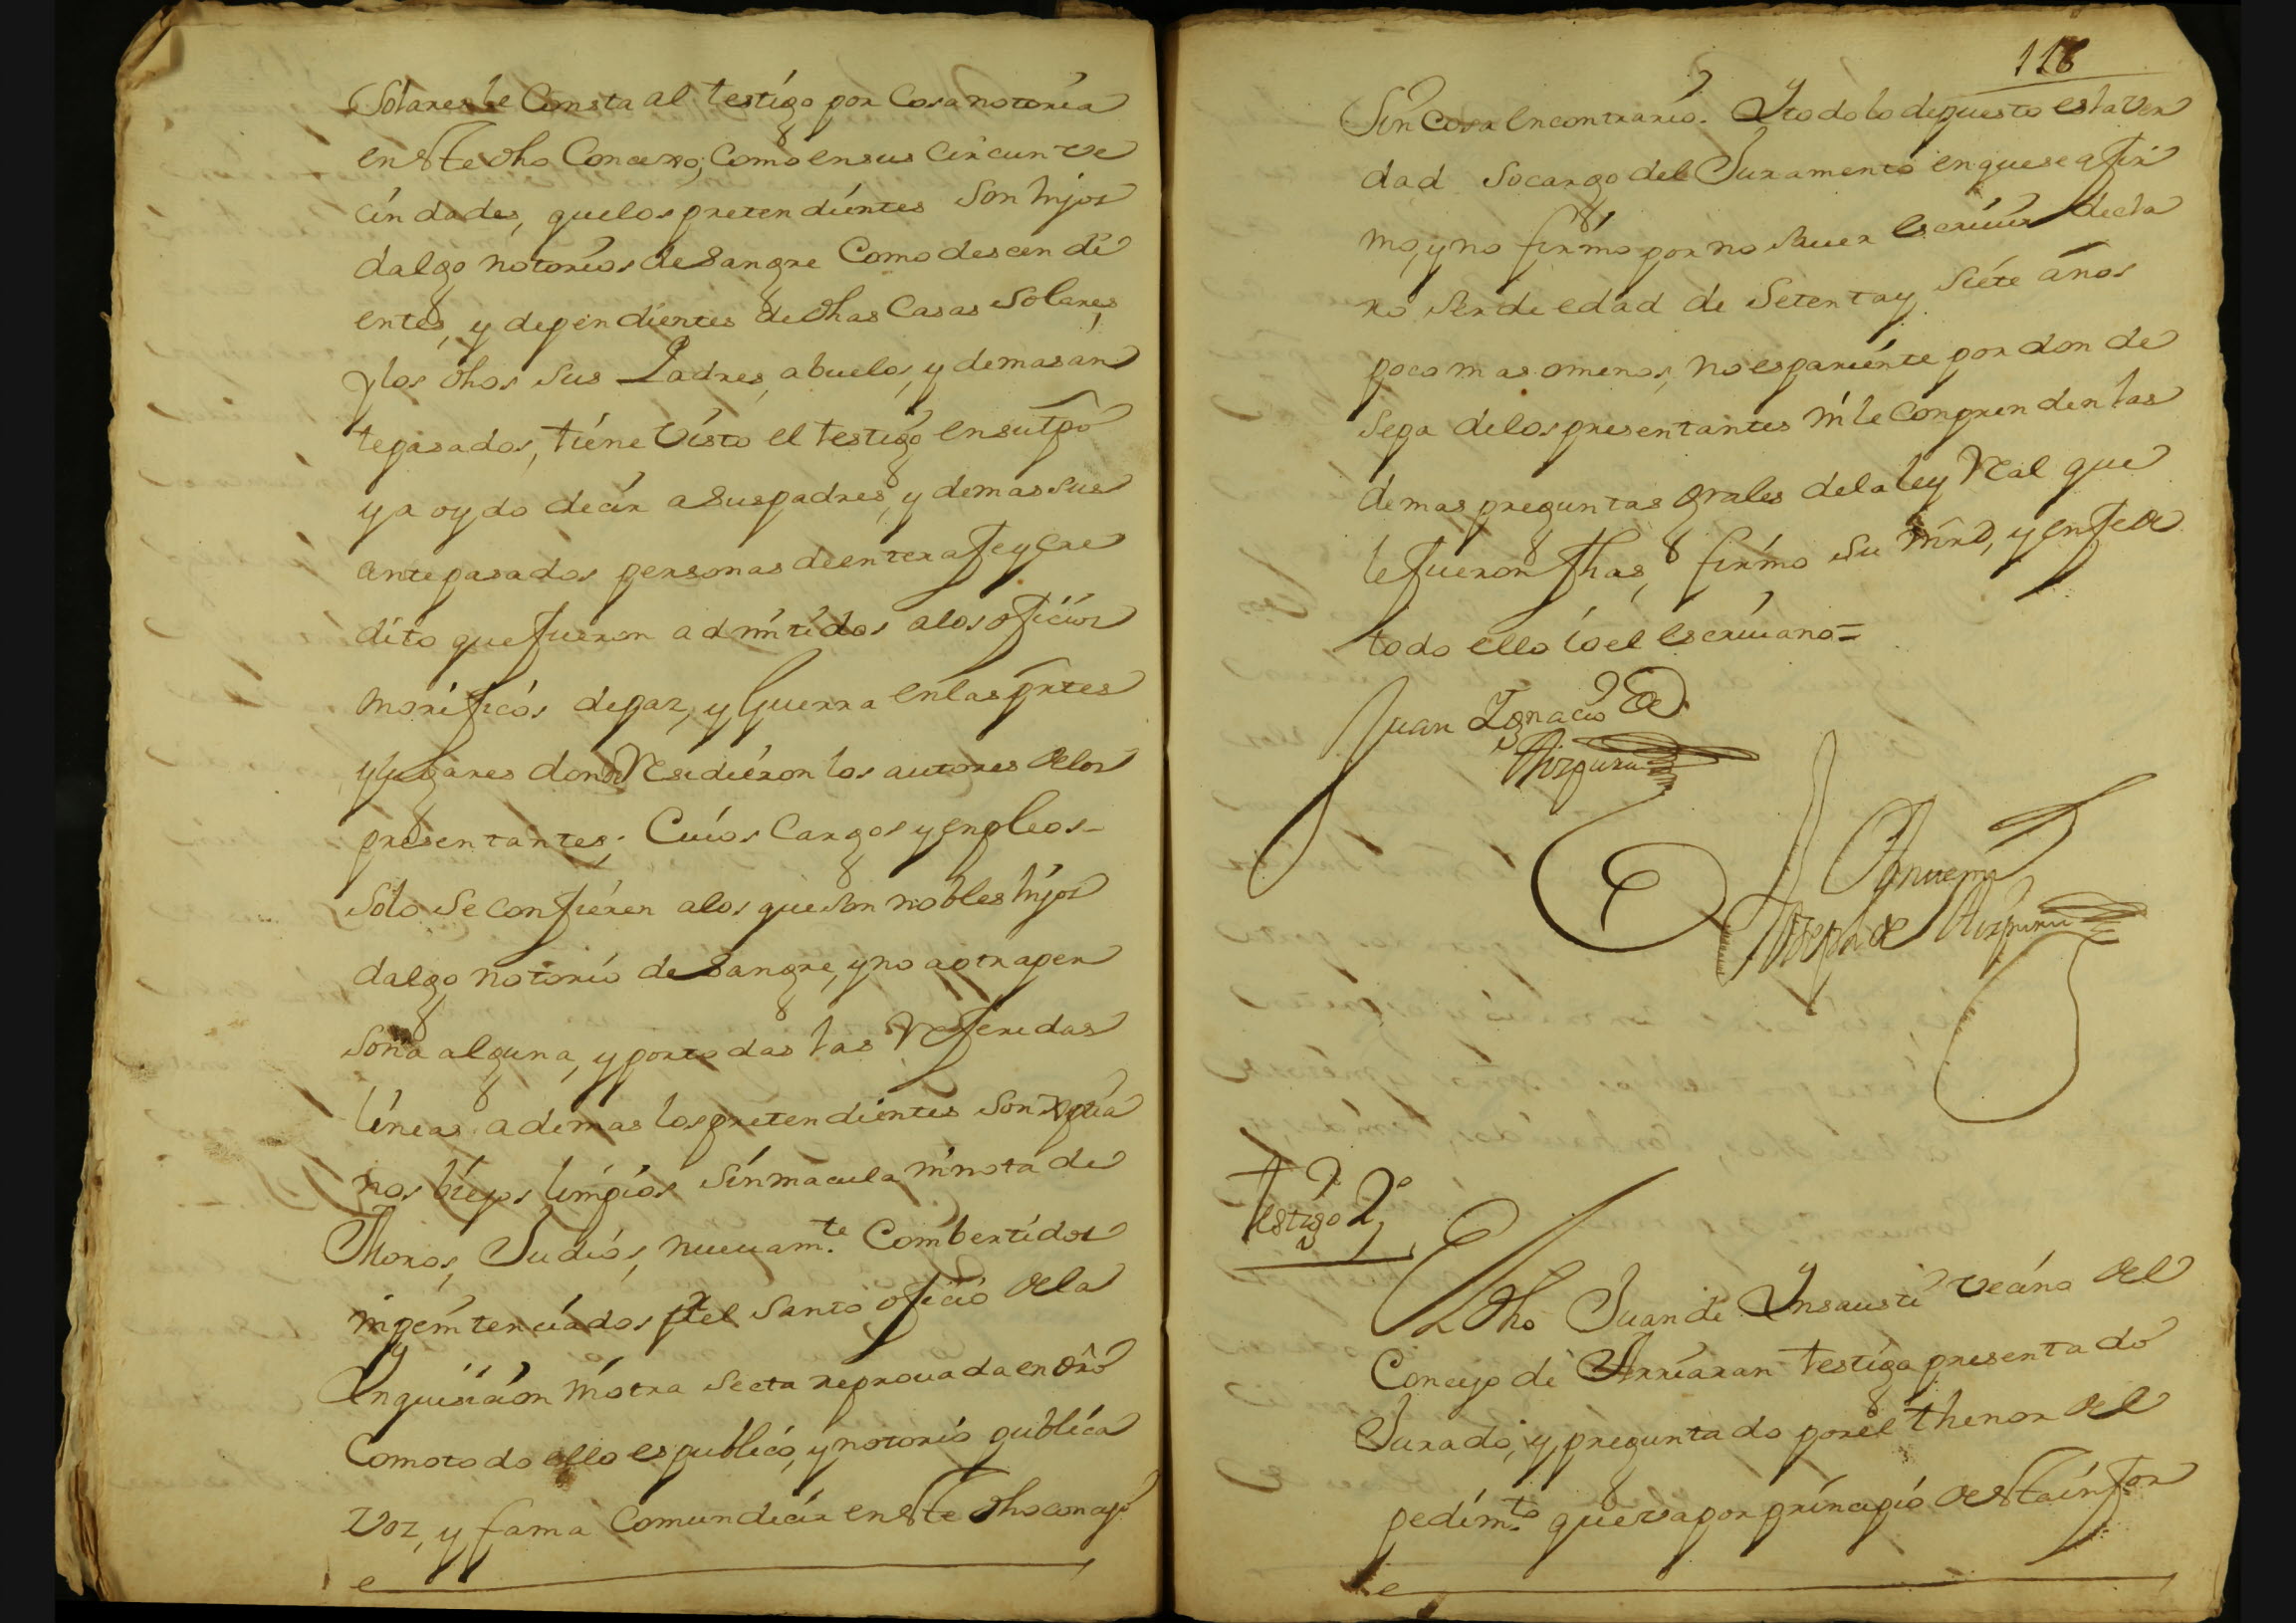 Solares le Consta al testigo por Cosa notoria
en este dho Concexo, Como en sus Circunve
cindades, que los pretendientes son hijos
dalgo notorios de sangre Como descendi
entes, y dependientes de dhas Casas Solares,
y los dhos sus Padres, abuelos, y demas an
tepasados, tiene Visto el testigo en su tpo
y a oydo decir a sus padres, y demas sus
antepasados personas de entera fe y cre
dito que fueron admitidos a los oficios
onorificos de paz, y Guerra en las prtes
y lugares donde Residieron los autores de los
presentantes; Cuios Cargos y enpleos
solo se confieren a los que son nobles hijos
dalgo notorio de sangre, y no a otra per
sona alguna, y por todas las Referidas
lineas ademas los pretendientes son Xptia
nos biejos limpios sin macula ni nota de
Moros, Judios, nueuamte Combertidos
ni penitenciados pr el santo oficio de la
Inquisicion ni otra secta reprouada en dro
Como todo ello es publico, y notorio publica
Voz, y fama Comun decir en este dho concejo
118
Sin Cosa en contrario. Y todo lo depuesto es la Ver
dad so cargo del Juramento en que se afir
mo, y no firmo por no sauer escriuir decla
ro ser de edad de setenta y siete años
poco mas o menos, no es pariente por donde
sepa de los presentantes ni le conprenden las
demas preguntas grales de la ley Real que
le fueron fhas, firmo su mrd, y en fe de
todo ello io el escriuano=
Juan Ignacio de
Aizpuru
Ante mi
Joseph de Aizpuru
Testigo 2º
El dho Juan de Ynsausti vecino del
Concejo de Arriaran testigo presentado
Jurado, y preguntado por el thenor del
pedimto que va por principio de esta infor